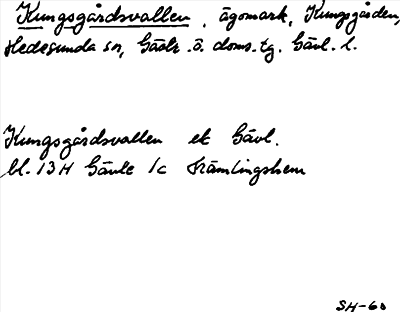 Kungsgårdsvallen, ägomark, Kungsgården,
Hedesunda sn, Gästr. ö. doms.tg. Gävl. l.
Kungsgårdsvallen ek Gävl.
bl. 13H Gävle 1c Främlingshem
SH-60